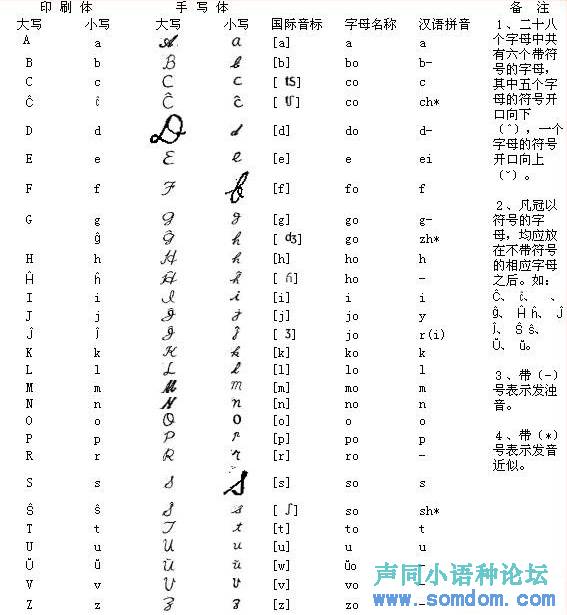 印 刷 体 手 写 体 国际音标 字母名称 汉语拼音
大写 小写 大写 小写
A a A a [a] a a
B b B b [b] bo b-
C c C c [ ʦ] co c
Ĉ ĉ Ĉ ĉ [ ʧ] co ch*
D d D d [d] do d-
E e E e [e] e ei
F f F f [f] fo f
G g G g [g] go g-
ĝ Ĝ [ ʤ] go zh*
H h H h [h] ho h
Ĥ ĥ Ĥ ĥ [ ɦ] ho -
I i I i [i] i i
J j J j [j] jo y
Ĵ ĵ Ĵ ĵ [ ʒ] jo r(i)
K k K k [k] ko k
L l L l [l] lo l
M m M m [m] mo m
N n N n [n] no n
O o O o [o] o o
P p P p [p] po p
R r R r [r] ro -
S s S s [s] so s
Ŝ ŝ Ŝ ŝ [ ʃ] so sh*
T t T t [t] to t
U u U u [u] u u
Ŭ ŭ Ŭ ŭ [w] ŭo -
V v V v [v] vo -
Z z Z z [z] zo
备 注
1、二十八
个字母中共
有六个带符
号的字母，
其中五个字
母的符号开
口向下
（ˆ），一个
字母的符号
开口向上
（ˇ）。
2、凡冠以
符号的字
母，均应放
在不带符号
的相应字母
之后。如：
Ĉ、 ĉ、 、
ĝ、 Ĥ ĥ、 Ĵ
ĵ、 Ŝ ŝ、
Ŭ、 ŭ。
3、带（-）
号表示发浊
音。
4、带（*）
号表示发音
近似。
声同小语种论坛
www.somdom.com